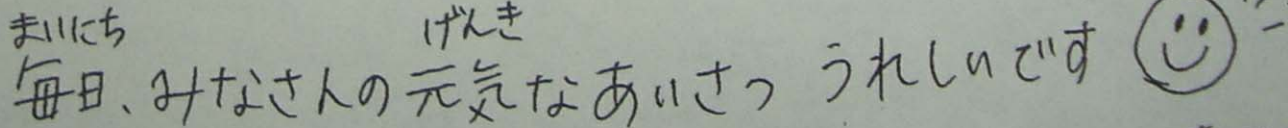 まいにち げんき
毎日、みなさんの元気なあいさつ うれしいです